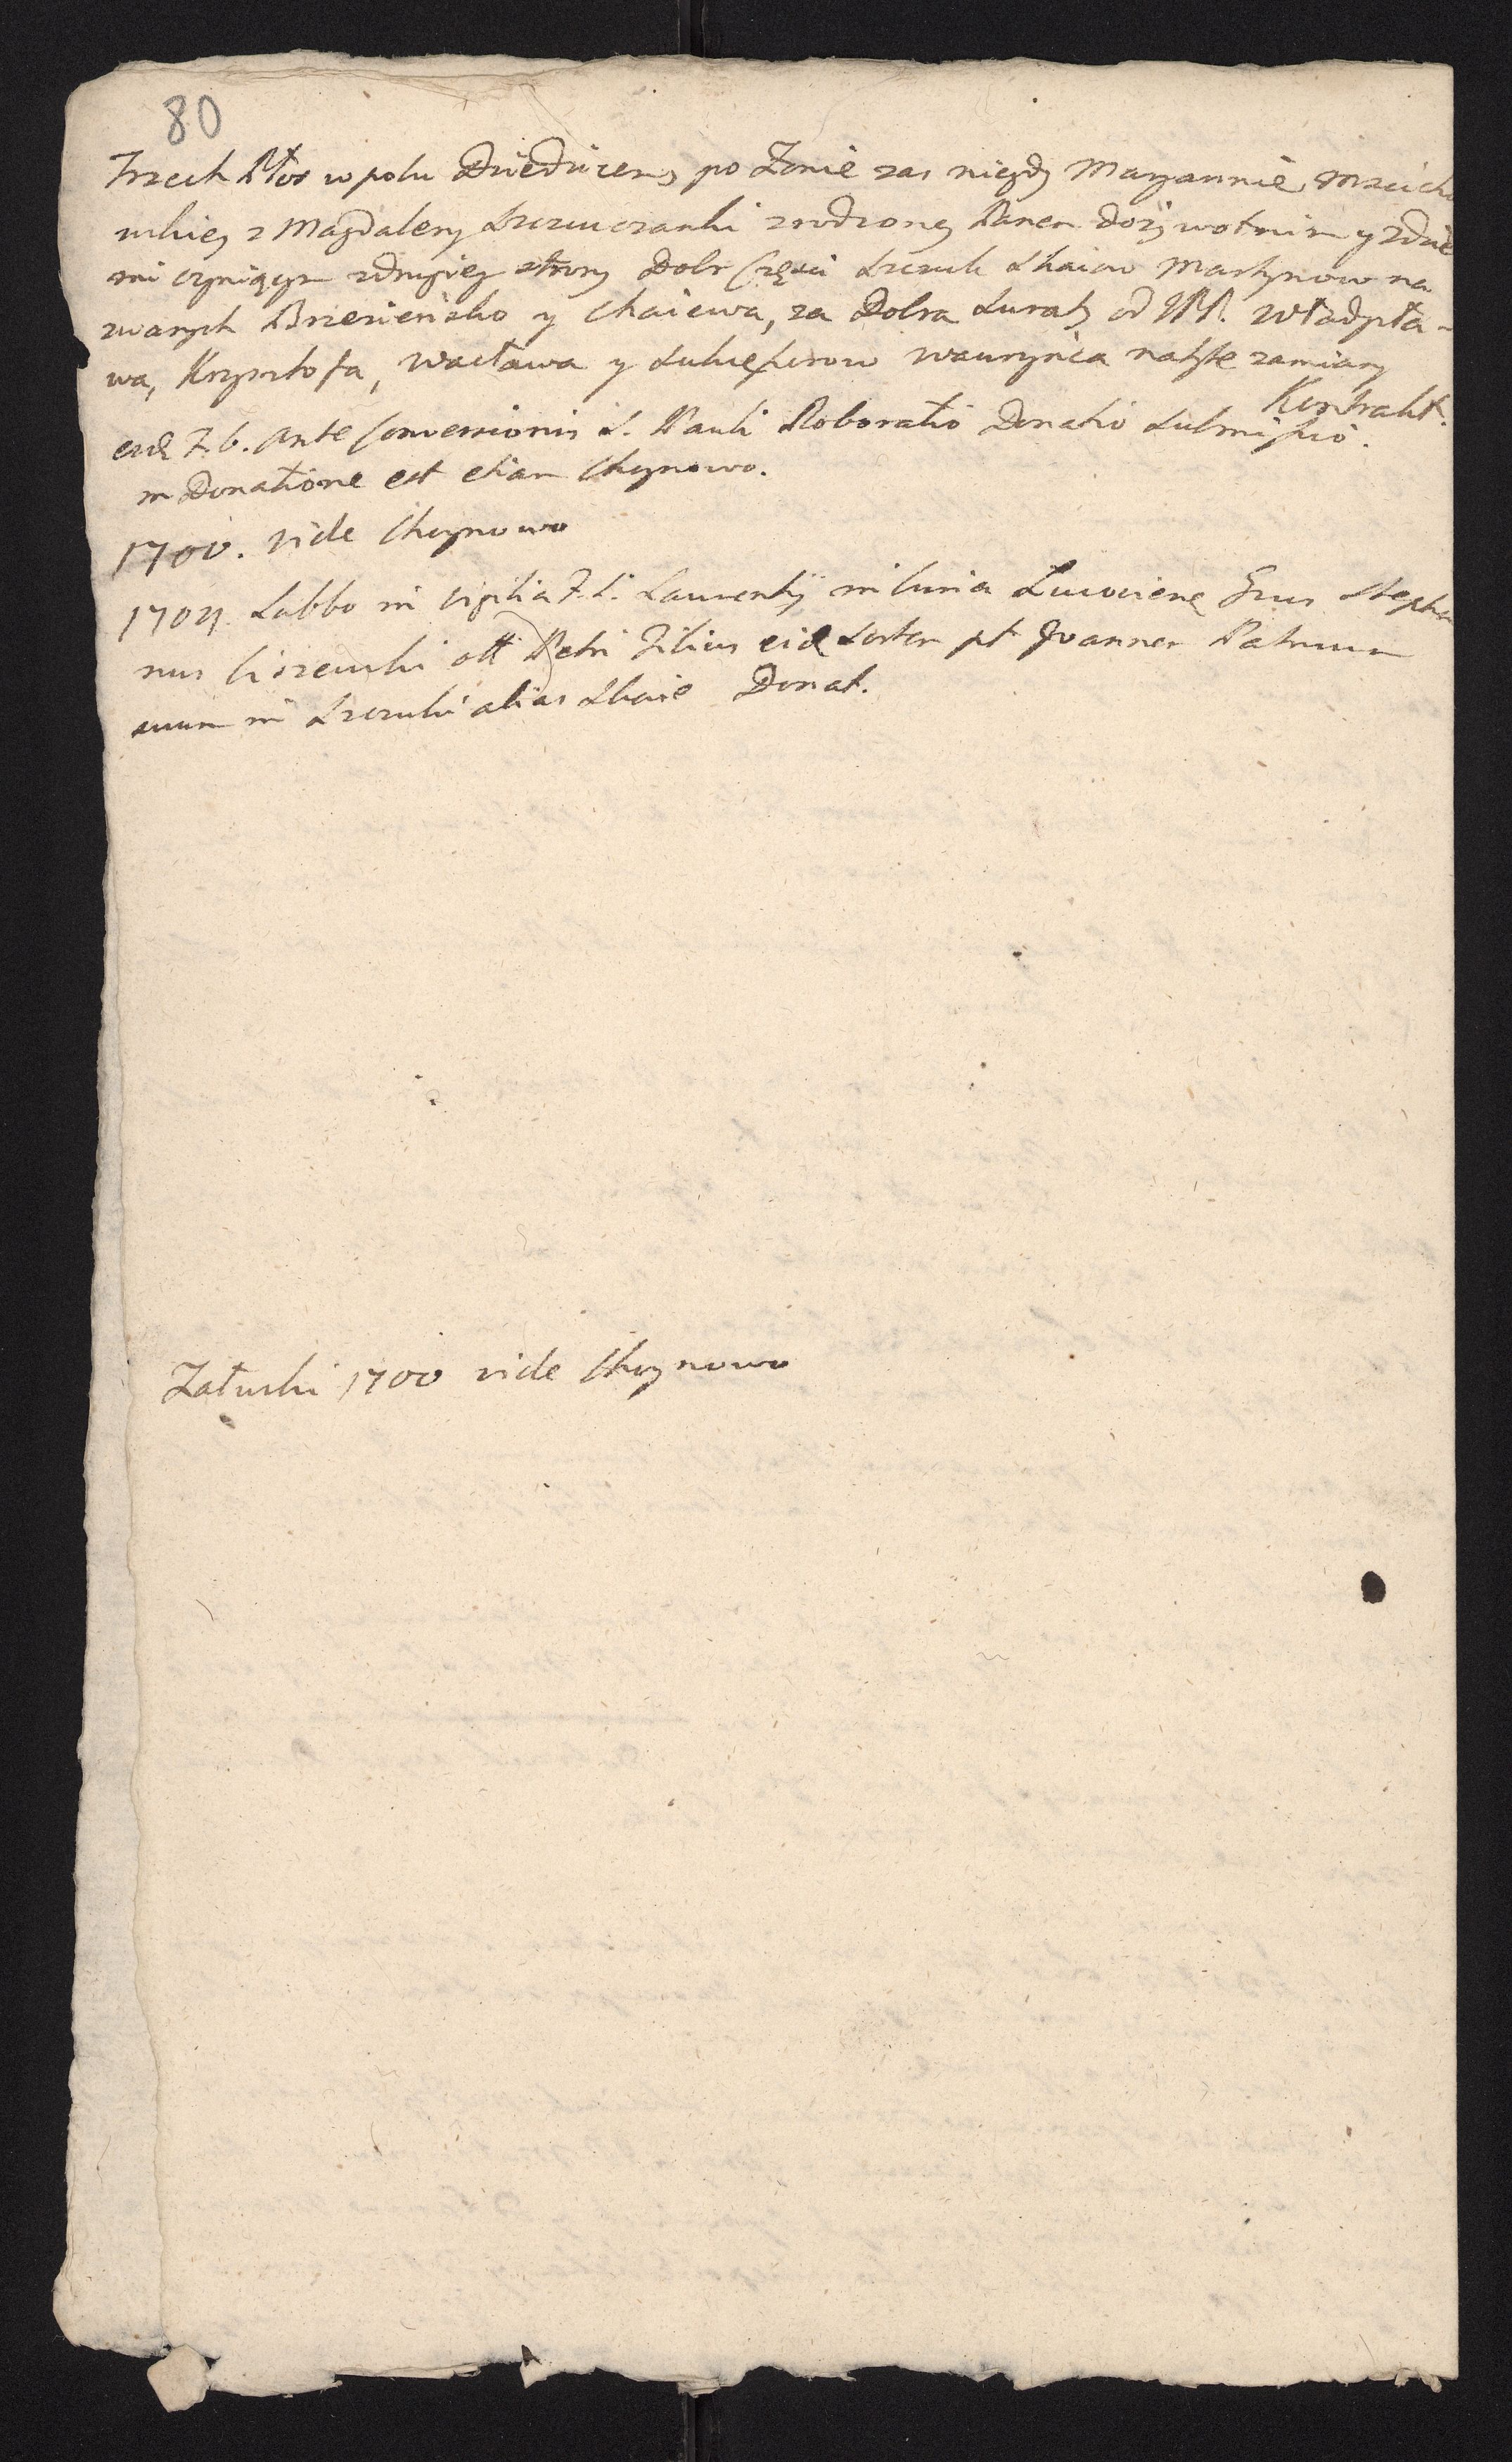 80
Trzech Płos w polu Dziedzicem, po Żonie zas niegdy Maryannie Mscicho
wskiey z Magdaleny Szczuczanki zrodzoney Panem dożywotnim y zdzie
mi czyniącym zdrugiey strony Dobr Części Szczuk Skaiow Martynow na
zwanych Brzezieńsko y Chaiewa, za Dobra Suraty od JPP. Władysła-
wa, Krzysztofa, Wacława y Wawrzyńca natyte zamiany
Kontrakt.
eod F. 6. Ante Conversionis S. Pauli Roboratio Donatio Submissio.
in Donatione est etiam Choynowo.
1700. vide Choynowo
1704 Sabbo in vigilia F. S. Laurentij in Curia Suae Grus Stepha
nus Ciszewski olt Petri Filius eid Sortem pt Joannes Patruum
suum in Szczuki alias Skaie Donat.
Załuski 1700 vide Choynowo